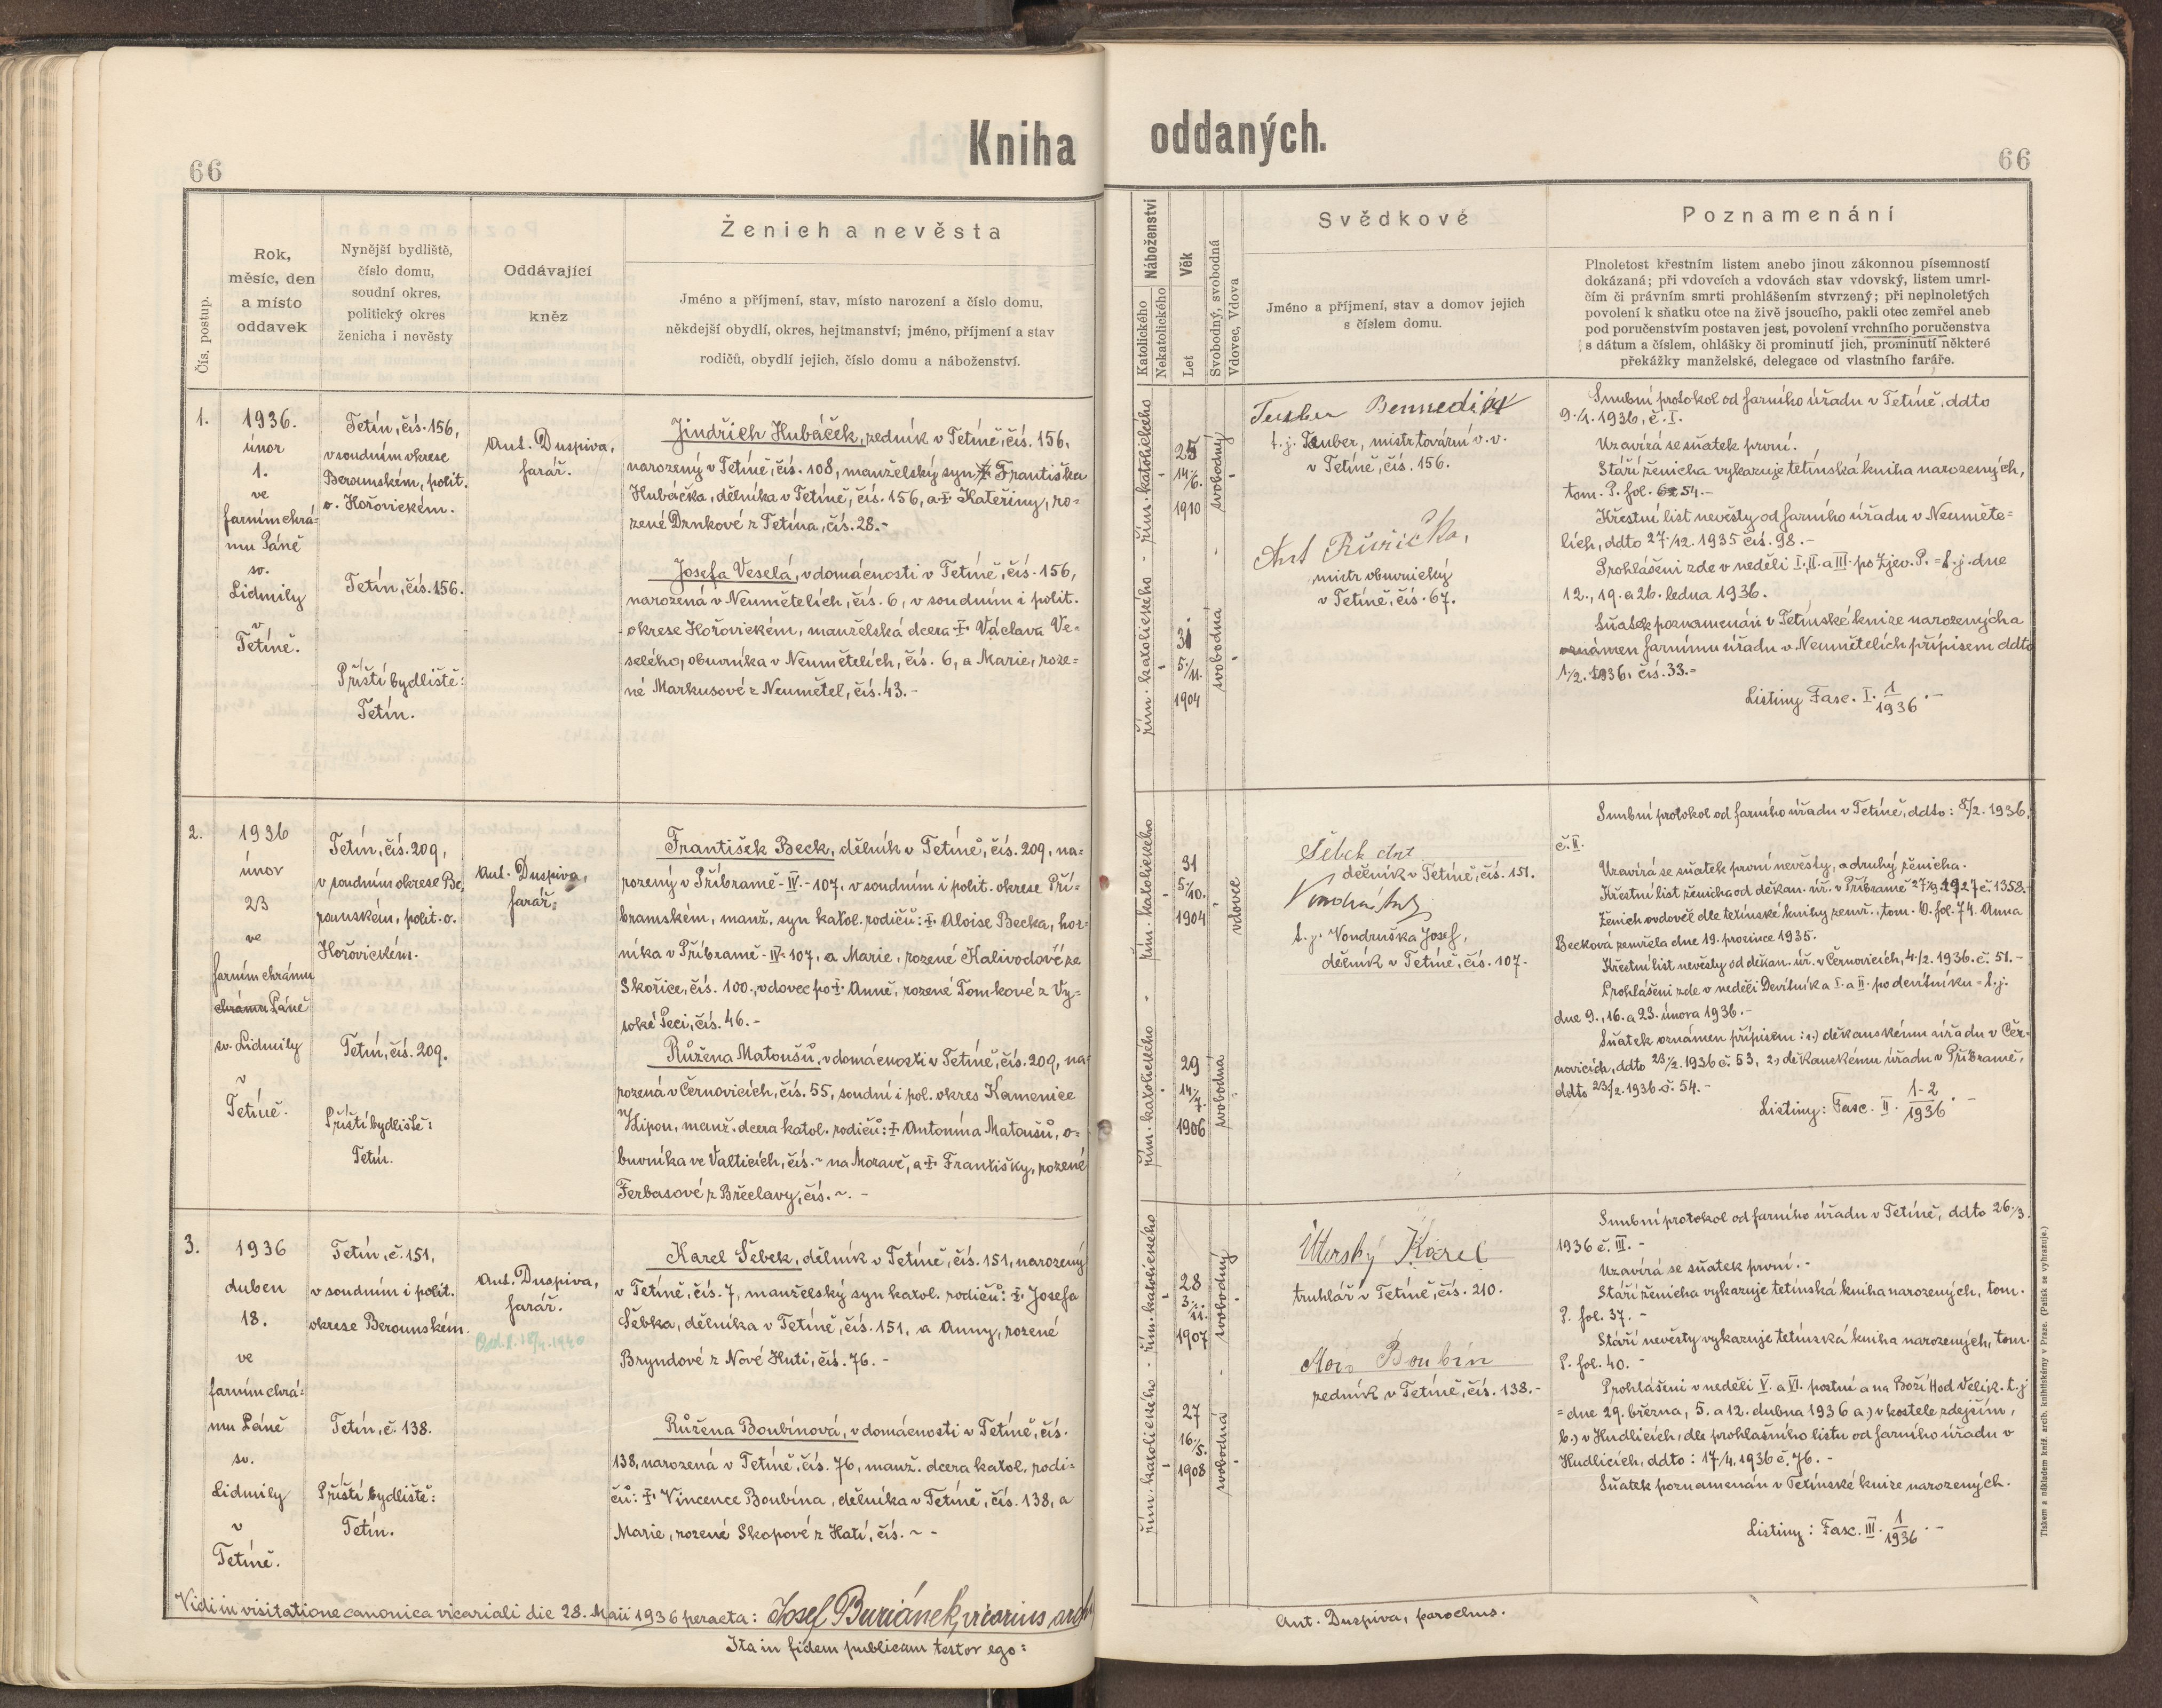 Kniha oddaných.
66
66
Čís. postup.
Rok,
měsíc, den
a místo
oddavek
Nynější bydliště,
číslo domu,
soudní okres,
politický okres
ženicha i nevěsty
Oddávající
kněz
Ženich a nevěsta
Jméno a příjmení, stav, místo narození a číslo domu,
někdejší obydlí, okres, hejtmanství; jméno, příjmení a stav
rodičů, obydlí jejich, číslo domu a náboženství.
Náboženství
Katolického
Nekatolického
Věk
Let
Svobodný, svobodná
Vdovec, Vdova
Svědkové
Jméno a příjmení, stav a domov jejich
s číslem domu.
Poznamenání
Plnoletost křestním listem anebo jinou zákonnou písemností
dokázaná; při vdovcích a vdovách stav vdovský, listem umrl-
čím či právním smrti prohlášením stvrzený; při neplnoletých
povolení k sňatku otce na živě jsoucího, pakli otec zemřel aneb
pod poručenstvím postaven jest, povolení vrchního poručenstva
s dátum a číslem, ohlášky či prominutí jich, prominutí některé
překážky manželské, delegace od vlastního faráře.
1.
1936.
únor
1.
ve
farním chrá-
mu Páně
sv.
Lidmily
v
Tetíně.
Tetín, čís. 156,
v soudním okrese
Berounském, polit.
o. Hořovickém.
Tetín, čís. 156.
Příští bydliště:
Tetín.
Ant. Duspiva,
farář.
Jindřich Hubáček, zedník v Tetíně, čís. 156,
narozený v Tetíně, čís. 108, manželský syn Františka
Hubáčka, dělníka v Tetíně, čís. 156, a † Kateřiny, ro-
zené Drnkové z Tetína, čís. 28.-
Josefa Veselá, v domácnosti v Tetíně, čís. 156,
narozená v Neumětelích, čís. 6, v soudním i polit.
okrese Hořovickém, manželská dcera † Václava Ve-
selého, obuvníka v Neumětelích, čís. 6, a Marie, roze-
né Markusové z Neumětel, čís. 43.-
řím. katolického - řím. katolického
25
14/6.
1910
31
5./11.
1904
svobodný
-
svobodná
Bennedikt
t. j. Tauber, mistr tovární v. v.
v Tetíně, čís. 156.
Ant Růžička,
mistr obuvnický
v Tetíně, čís. 67.
Snubní protokol od farního úřadu v Tetíně, ddto
9./1. 1936, č. I.
Uzavírá se sňatek první.
Stáří ženicha vykazuje tetínská kniha narozených,
tom. P. fol. 54.-
Křestní list nevěsty od farního úřadu v Neuměte-
lích, ddto 27./12. 1935 čís. 98.-
Prohlášeni zde v neděli I., II. a III. po Zjev. P. = t. j. dne
12., 19. a 26. ledna 1936.
Sňatek poznamenán v Tetínské knize narozených a
oznámen farnímu úřadu v Neumětelích přípisem ddto
1/2. 1936. čís. 33.-
Listiny Fasc. I. 1/1936.-
2.
1936
únor
23
ve
farním chrámu
chrámu Páně
sv. Lidmily
v
Tetíně.
Tetín, čís. 209,
v soudním okrese Be-
rounském, polit. o.
Hořovickém.
Tetín, čís. 209.
Příští bydliště:
Tetín.
Ant. Duspiva,
farář.
František Beck, dělník v Tetíně, čís. 209, na-
rozený v Příbramě-IV.-107, v soudním i polit. okrese Pří-
bramském, manž. syn katol. rodičů: † Aloise Becka, hor-
níka v Příbramě-IV-107, a Marie, rozené Kalivodové ze
Skořice, čís. 100., vdovec po † Anně, rozené Tomkové z Vy-
soké Peci, čís. 46.-
Růžena Matoušů, v domácnosti v Tetíně, čís. 209, na-
rozená v Černovicích, čís. 55, soudní i pol. okres Kamenice
n/Lipou, manž. dcera katol. rodičů: † Antonína Matoušů, o-
buvníka ve Valticích, čís. ~ na Moravě, a † Františky, rozené
Ferbasové z Břeclavy, čís. ~. -
řím. katolického - řím. katolického
31
5./10.
1904
29
14./7.
1906
vdovce
svobodná
Šebek Ant
dělník v Tetíně, čís. 151.
t. j. Vondruška Josef,
dělník v Tetíně, čís. 107.
Snubní protokol od farního úřadu v Tetíně, ddto: 8./2. 1936,
č. II.
Uzavírá se sňatek první nevěsty, a druhý ženicha.
Křestní list ženicha od děkan. úř. v Příbramě 27/9. 1927 č. 1358.-
Ženich ovdověl dle tetínské knihy zemř., tom. O. fol. 74. Anna
Becková zemřela dne 19. prosince 1935.
Křestní list nevěsty od děkan. úř. v Černovicích, 4./2. 1936. č. 51.-
Prohlášeni zde v neděli Devítník a I. a II. po devítníku = t. j.
dne 9., 16. a 23. února 1936.-
Sňatek oznámen přípisem: 1.) děkanskému úřadu v Čer-
novicích, ddto 23./2. 1936 č. 53, 2.) děkanskému úřadu v Příbramě,
ddto 23/2. 1936 č. 54.-
Listiny: Fasc. II. 1-2/1936.-
3.
1936
duben
18.
ve
farním chrá-
mu Páně
sv.
Lidmily
v
Tetíně.
Tetín, č. 151,
v soudním i polit.
okrese Berounském.
Tetín, č. 138.
Příští bydliště:
Tetín.
Ant. Duspiva,
farář.
Karel Šebek, dělník v Tetíně, čís. 151, narozený
v Tetíně, čís. 7, manželský syn katol. rodičů: † Josefa
Šebka, dělníka v Tetíně, čís. 151, a Anny, rozené
Bryndové z Nové Huti, čís. 76. -
Růžena Boubínová, v domácnosti v Tetíně, čís.
138, narozená v Tetíně, čís. 76, manž. dcera katol. rodi-
čů: † Vincence Boubína, dělníka v Tetíně, čís. 138, a
Marie, rozené Skopové z Hatí, čís. ~ -
řím. katolického - řím. katolického
28
3./11.
1907
27
16./5.
1908
svobodný
-
svobodná
Karel
truhlář v Tetíně, čís. 210.
Boubín
zedník v Tetíně, čís. 138.-
Snubní protokol od farního úřadu v Tetíně, ddto 26./3.
1936 č. III. -
Uzavírá se sňatek první.-
Stáří ženicha vykazuje tetínská kniha narozených, tom.
P. fol. 37. -
Stáří nevěsty vykazuje tetínská kniha narozených, tom.
P. fol. 40. -
Prohlášeni v neděli V. a VI. postní a na Boží Hod Velik. t. j
= dne 29. března, 5. a 12. dubna 1936 a) v kostele zdejším,
b.) v Hudlicích, dle prohlašního listu od farního úřadu v
Hudlicích, ddto: 17/4. 1936 č. 76. -
Sňatek poznamenán v Tetínské knize narozených.
Listiny: Fasc. III. 1/1936.-
Vidi in visitatione canonica vicariali die 28. Maii 1936 peracta: Josef Buriánek, vicarius
Ita in fidem publicam testor ego:
Ant. Duspiva, parochus.
Tiskem a nákladem kníž. arcib. knihtiskárny v Praze. (Patisk se vyhrazuje.)